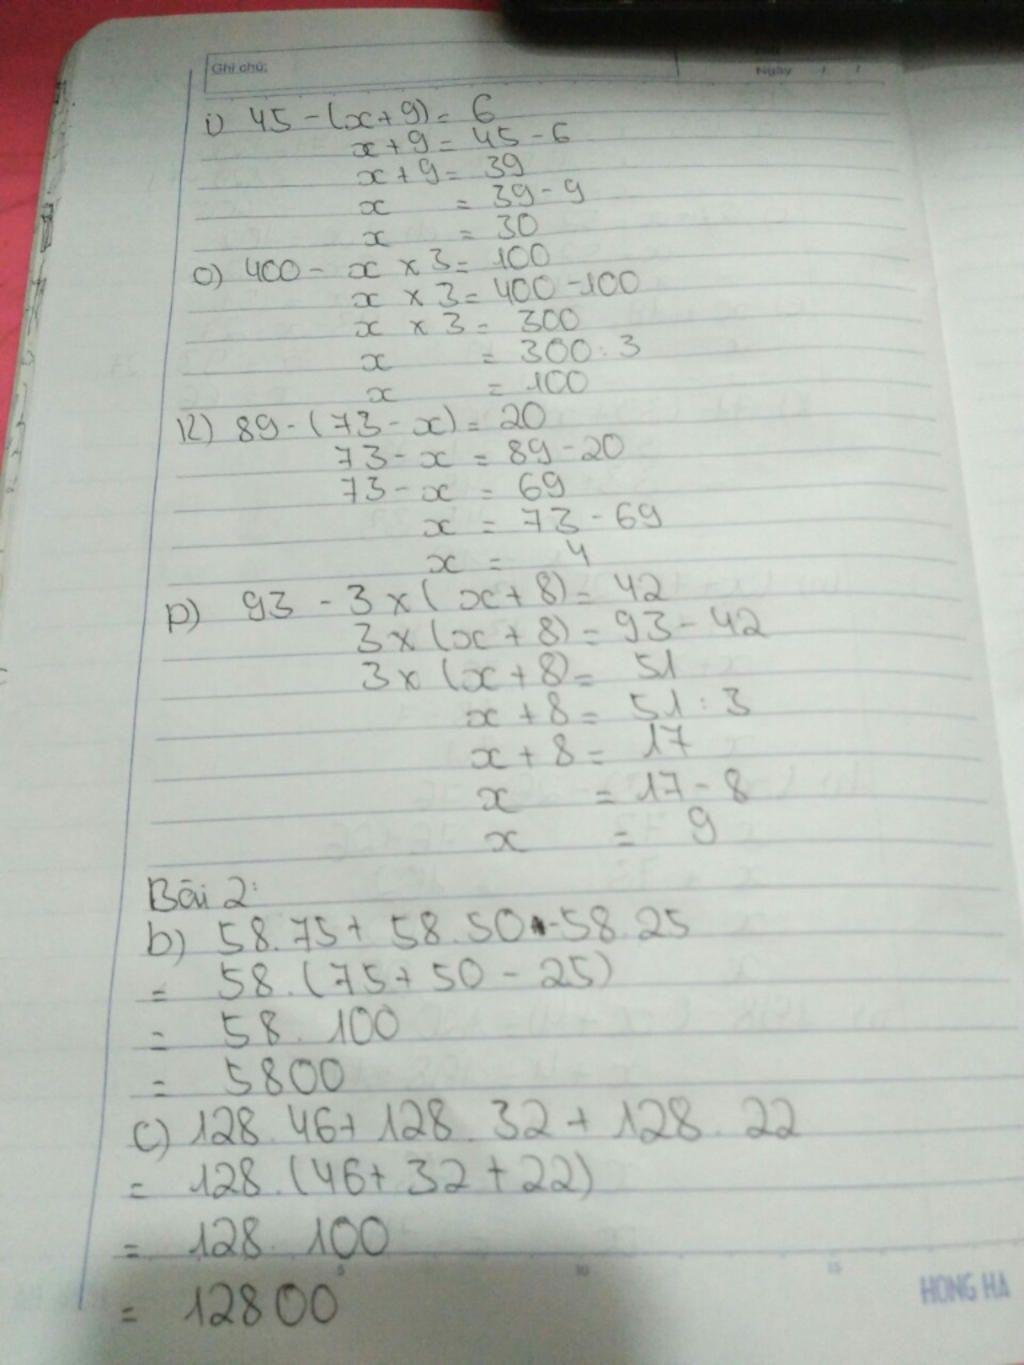 Ghi chú:
Ngày / /
i) 45 - (x + 9) = 6
x + 9 = 45 - 6
x + 9 = 39
x = 39 - 9
x = 30
o) 400 - x × 3 = 100
x × 3 = 400 - 100
x × 3 = 300
x = 300 : 3
x = 100
k) 89 - (73 - x) = 20
73 - x = 89 - 20
73 - x = 69
x = 73 - 69
x = 4
p) 93 - 3 × (x + 8) = 42
3 × (x + 8) = 93 - 42
3 × (x + 8) = 51
x + 8 = 51 : 3
x + 8 = 17
x = 17 - 8
x = 9
Bài 2:
b) 58.75 + 58.50 - 58.25
= 58.(75 + 50 - 25)
= 58.100
= 5800
c) 128.46 + 128.32 + 128.22
= 128.(46 + 32 + 22)
= 128.100
5 10 15
HONG HA
= 12800